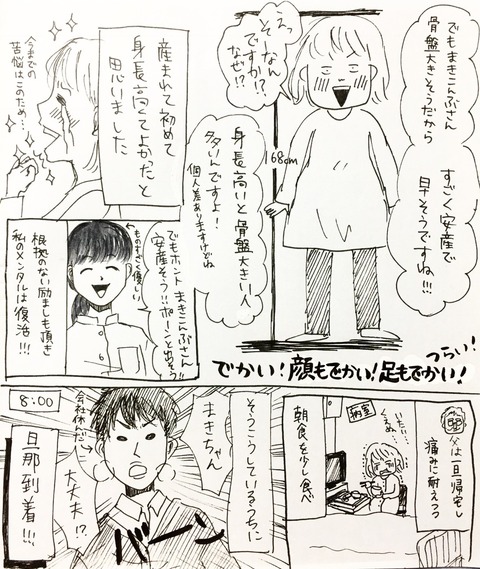 でもまきこんぶさん
骨盤大きそうだから
すごく安産で
早そうですね!!!
えっ
そうなん
ですか!?
なぜ!?
168cm
身長高いと骨盤大きい人
多いんですよ!
個人差ありますけどね
でかい!顔もでかい!足もでかい!
つらい!
産まれて初めて
身長高くてよかったと
思いました
今までの
苦悩はこのため…
でもホントまきこんぶさん
安産そう!!ポーンと出そう!!
ものすごく優しい
根拠のない励ましも頂き
私のメンタルは復活!!!
父は一旦帰宅し
痛みに耐えつつ
病室
いたい…
くえぬ…
朝食を少し食べ
8:00
そうこうしているうちに
まきちゃん
大丈夫!?
会社休んだ
バーン
旦那到着!!!